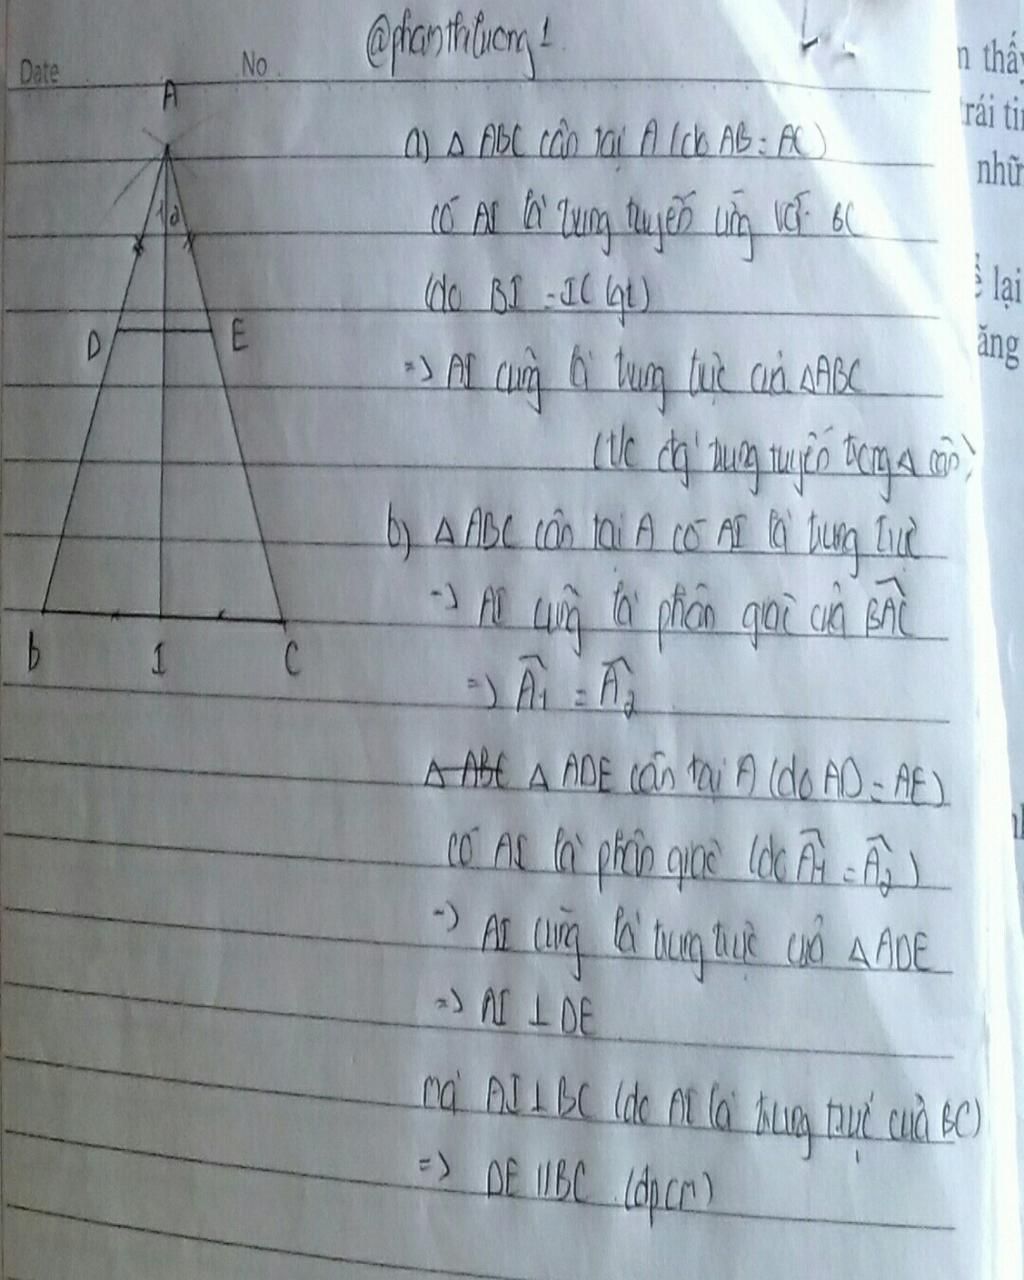 @phanthituong1
Date No
A
a) Δ ABC cân tại A (do AB = AC)
1 2
có AI là trung tuyến ứng với BC
(do BI = IC (gt)
D E
=> AI cũng là trung trực của ΔABC
(t/c đg trung tuyến trong Δ cân)
b) Δ ABC cân tại A có AI là trung trực
=> AI cũng là phân giác của BAC
B I C
=> A1 = A2
Δ ABC Δ ADE cân tại A (do AD = AE)
có AI là phân giác (do A1 = A2)
=> AI cũng là trung trực của Δ ADE
=> AI ⊥ DE
mà AI ⊥ BC (do AI là trung trực của BC)
=> DE // BC (đpcm)
n thấy
trái tin
nhữ
lại
ăng